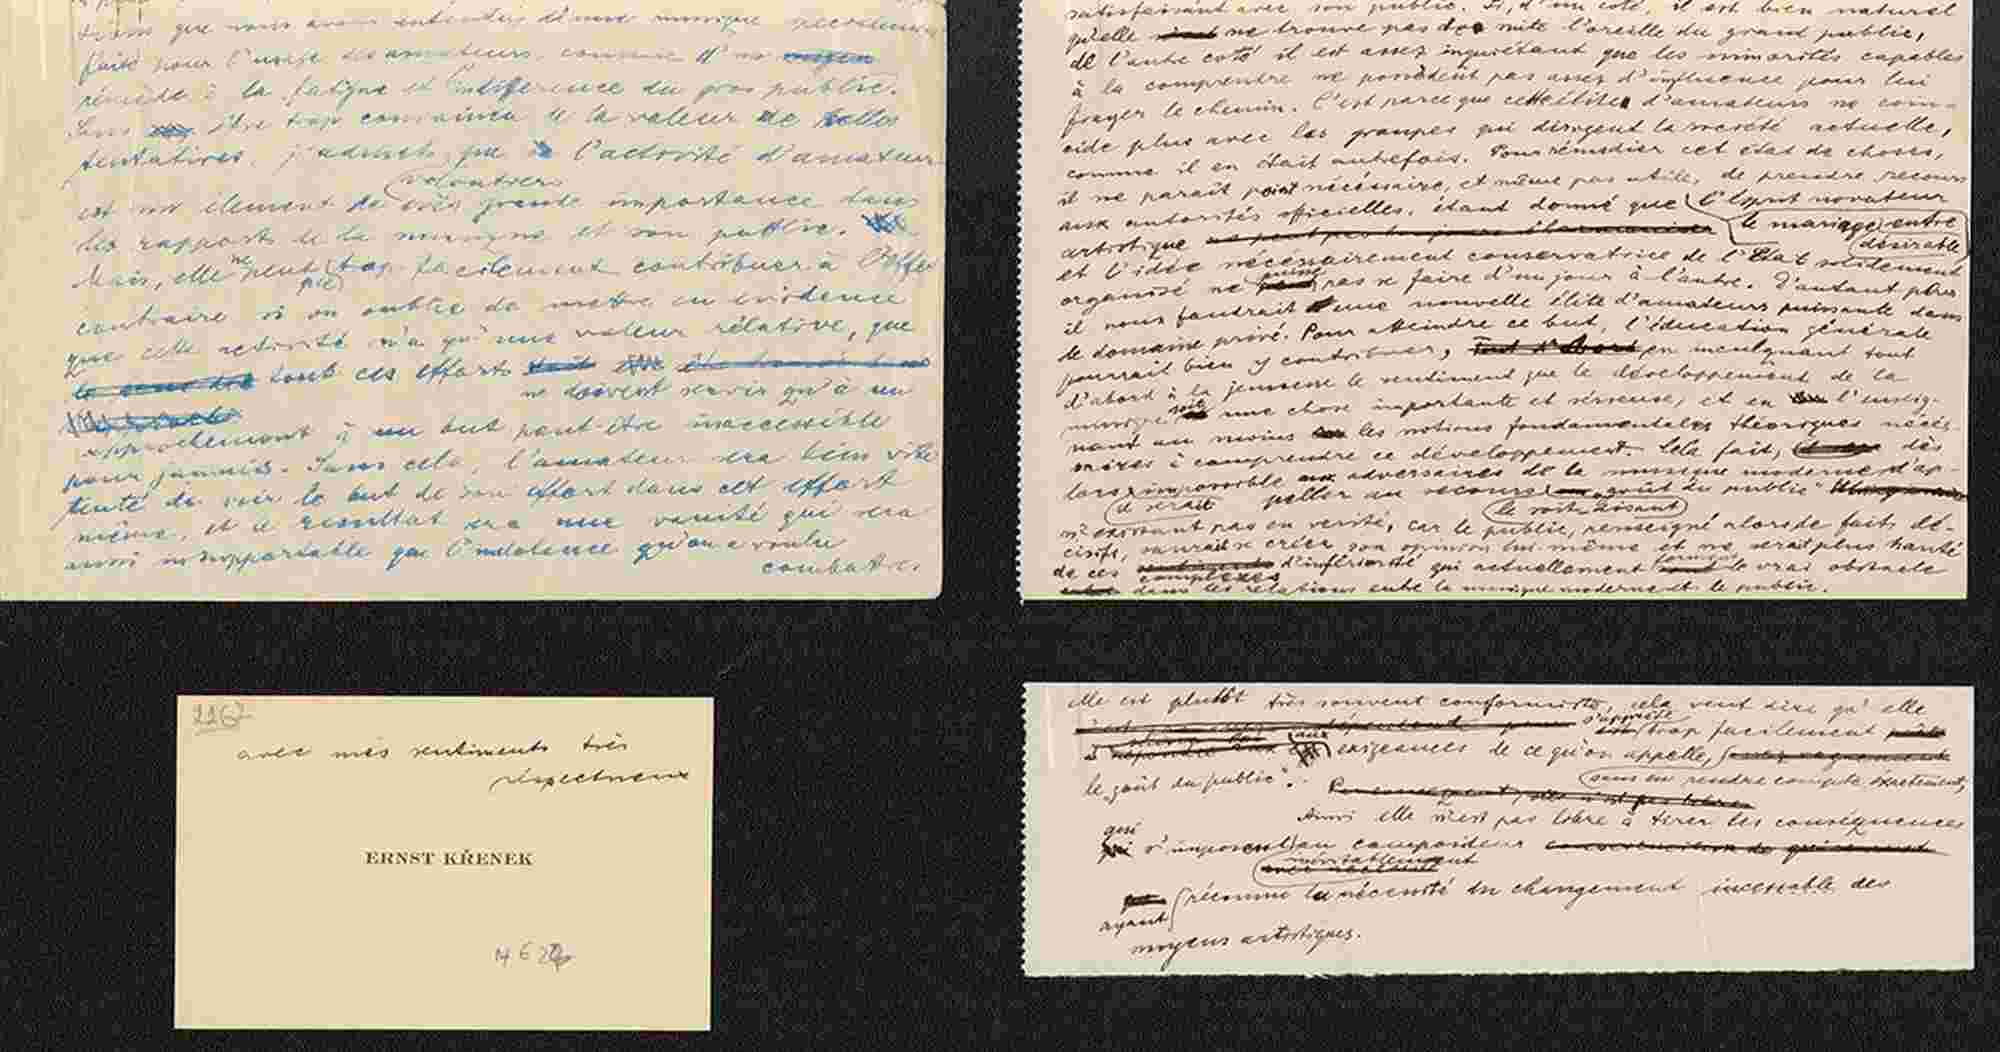 tions que nous avons entendu d'une musique
faite pour l'usage des amateurs, comme d'un
remède à la fatigue et l'indifférence du gros public.
Sans être trop convaincu de la valeur de telles
tentatives, j'admets que l'activité d'amateur
volontiers
est un élément de très grande importance dans
les rapports de la musique et son public.
Mais, elle ne peut trop facilement contribuer à l'effet
contraire si on oublie de mettre en évidence
que cette activité n'a qu'une valeur rélative, que
tout ces efforts
ne doivent servir qu'à un
approchement à un but peut-être inaccessible
pour jamais. Sans cela, l'amateur sera bien vite
tenté de voir le but de son effort dans cet effort
même, et le resultat sera une vanité qui sera
aussi insupportable que l'indolence qu'on a voulu
combattre.
satisfaisant avec son public. Si, d'un coté, il est bien naturel
qu'elle ne trouve pas de suite l'oreille du grand public,
de l'autre coté il est assez inquiétant que les minorités capables
à la comprendre ne possèdent pas assez d'influence pour lui
frayer le chemin. C'est parce que cette élite d'amateurs ne coin-
cide plus avec les groupes qui dirigent la société actuelle,
comme il en était autrefois. Pour rémédier cet état de choses,
il ne parait point nécessaire, et même pas utile, de prendre recours
aux autorités officielles, étant donné que l'esprit novateur
le mariage entre
artistique
désirable
et l'idée nécessairement conservatrice de l'Etat solidement
organisé ne puisse pas se faire d'un jour à l'autre. D'autant plus
il nous faudrait une nouvelle élite d'amateurs puissante dans
le domaine privé. Pour atteindre ce but, l'éducation générale
pourrait bien y contribuer, en inculquant tout
d'abord à la jeunesse le sentiment que le développement de la
musique soit une chose importante et sérieuse, et en l'enseig-
nant au moins les notions fondamentales théoriques néces-
saires à comprendre ce développement. Cela fait, dès
lors impossible aux adversaires de la musique moderne d'ap-
il serait peller au recours goût du public"
le soit-disant
n'existant pas en verité, car le public, renseigné alors de faits dé-
cisifs, saurait se créer son opinion lui-même et ne serait plus hanté
de ces d'infériorité qui actuellement forment le vrai obstacle
complexes
dans les relations entre la musique moderne et le public.
2267
avec mes sentiments très
réspectueux
ERNST KŘENEK
elle est plutôt très souvent conformiste, cela veut dire qu'elle
s'apprête trop facilement
aux exigeances de ce qu'on appelle,
sans en rendre compte éxactement,
le goût du public".
Ainsi elle n'est pas libre à tirer les conséquences
qui
s'imposent au compositeur
véritablement
réconnu la nécessité du changement incessable des
ayant
moyens artistiques.